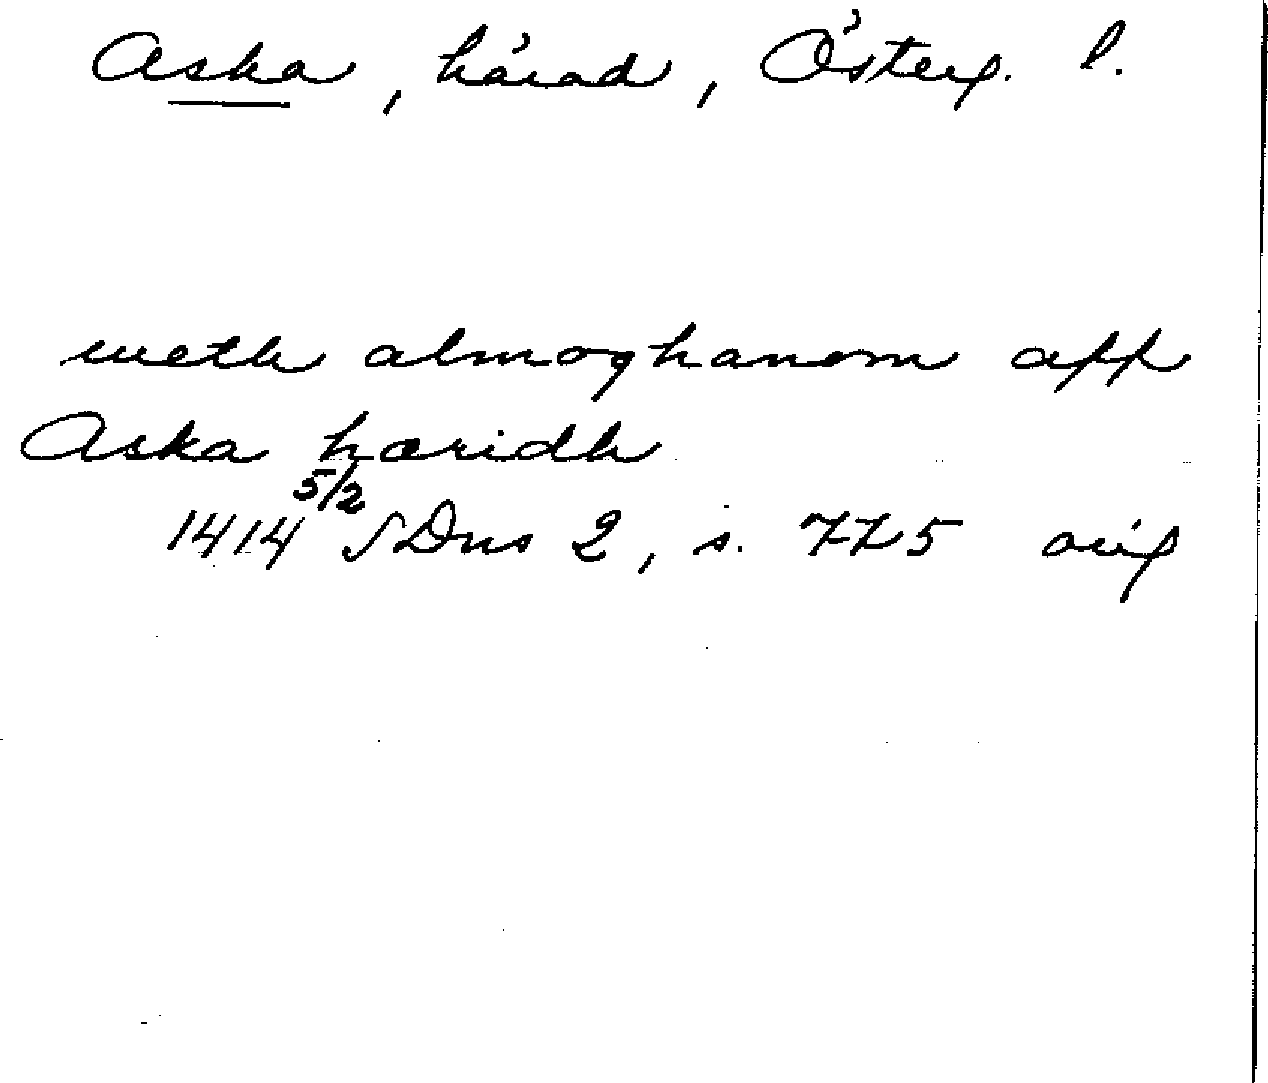 Aska, härad, Österg. l.
meth almoghanom aff
Aska hæridh
1414 5/2 SDns 2, s. 775 orig